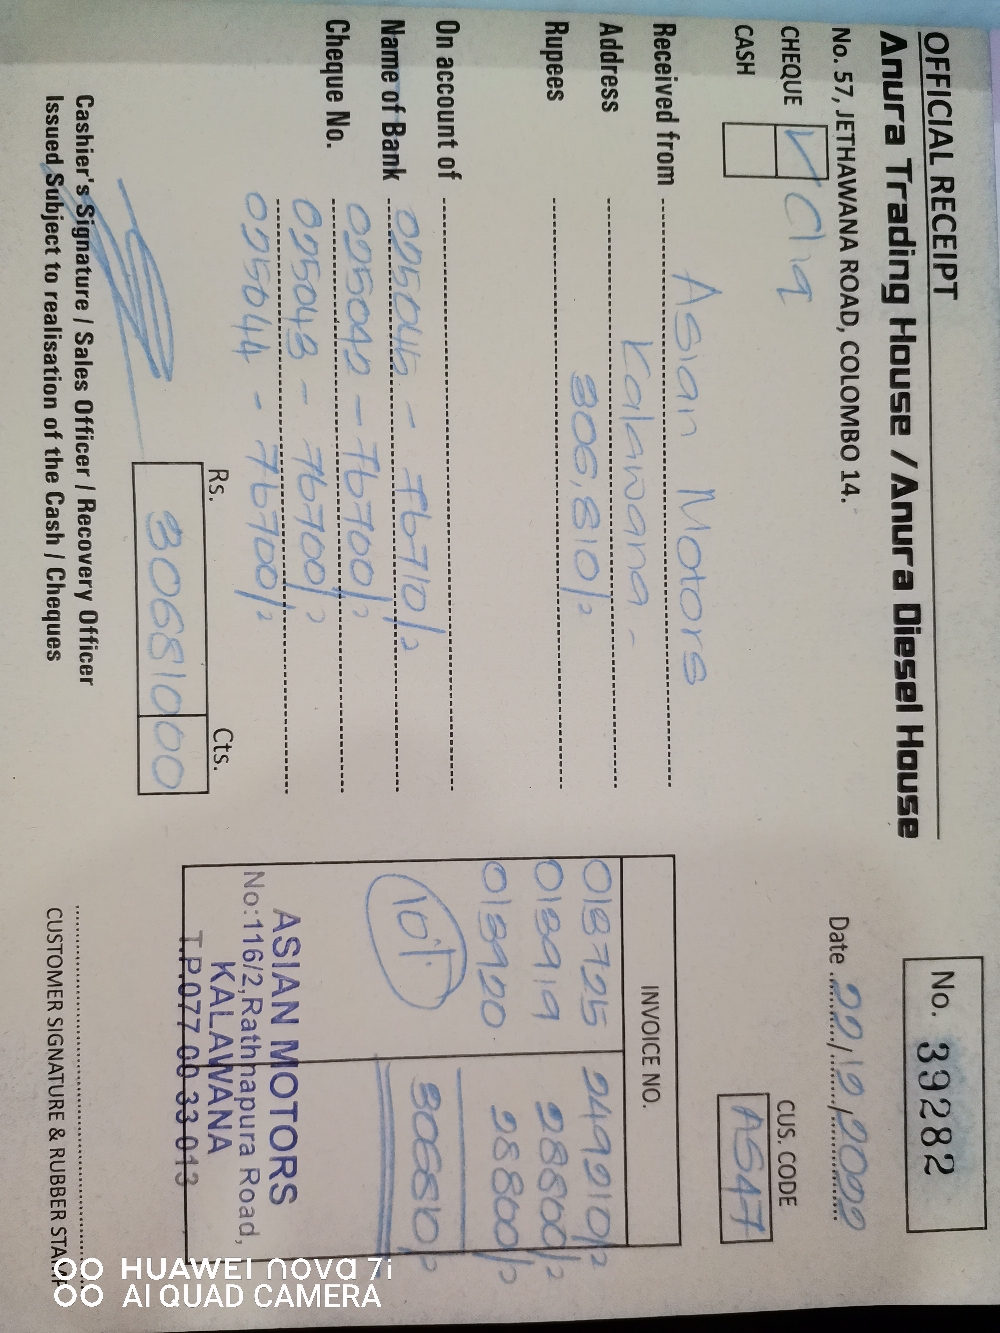 OFFICIAL RECEIPT
Anura Trading House / Anura Diesel House
No. 57, JETHAWANA ROAD, COLOMBO 14.
No. 39282
Date 22/12/2022
CHEQUE ✓
CASH
CUS. CODE
AS47
Received from Asian Motors
Address Kalawana -
Rupees 306,810/=
On account of
Name of Bank 025045 - 76710/=
Cheque No. 025042 - 76700/=
025043 - 76700/=
025044 - 76700/=
Rs. Cts.
306810 00
INVOICE NO.
018725 249210/=
018919 28800/=
018920 28800/=
306810/=
10%
ASIAN MOTORS
No:116/2,Rathnapura Road,
KALAWANA
T.P.077 00 33 013
Cashier's Signature / Sales Officer / Recovery Officer
Issued Subject to realisation of the Cash / Cheques
CUSTOMER SIGNATURE & RUBBER STAMP
HUAWEI nova 7i
AI QUAD CAMERA